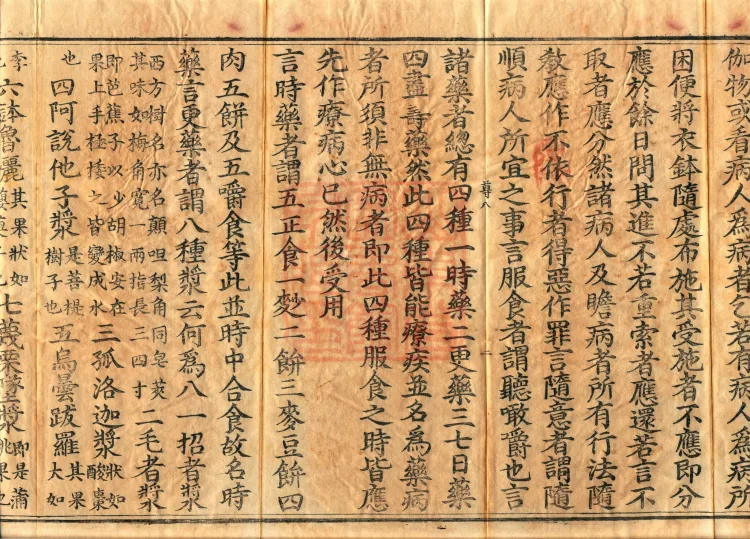 伽物或看病人爲病者乞若有病人爲病所
困便將衣鉢隨處布施其受施者不應即分
應於餘日問其進不若重索者應還若言不
取者應分然諸病人及瞻病者所有行法隨
教應作不依行者得惡作罪言隨意者謂隨
順病人所宜之事言服食者謂聽噉嚼也言
尊八
諸藥者總有四種一時藥二更藥三七日藥
四盡壽藥然此四種皆能療疾並名爲藥病
者所須非無病者即此四種服食之時皆應
先作療病心已然後受用
言時藥者謂五正食一麨二餅三麥豆餅四
肉五餅及五嚼食等此並時中合食故名時
藥言更藥者謂八種漿云何爲八一招者漿
西方樹名亦名顛咀梨角同皂莢其味如梅角寬一兩指長三四寸二毛者漿
即芭蕉子以少胡椒安在果上手極捼之皆變成水三孤洛迦漿狀如酸棗
也四阿說他子漿是菩提樹子也五烏曇跋羅其果大如
李六鉢魯灑其果狀如七蔑栗墜漿即是蒲